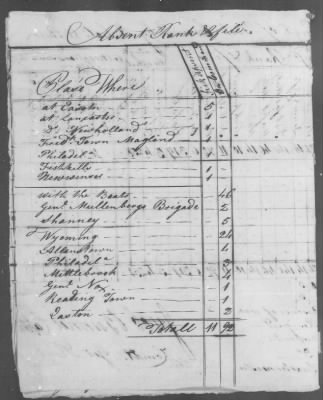 Absent Rank & file
Place Where
at Easton 5
at Lancaster 1
Do Newholland 1
Fred Town Maryland
Philadela
Fishkills 1
Newwinsor 1
with the Boats 46
Genl Mullenbergs Brigade 2
Shanney 5
Wyoming 24
Allens Town 4
Philadela
Mettlebrook
Genl Nox 1
Reading Town 1
Easton 2
Totall 11 92